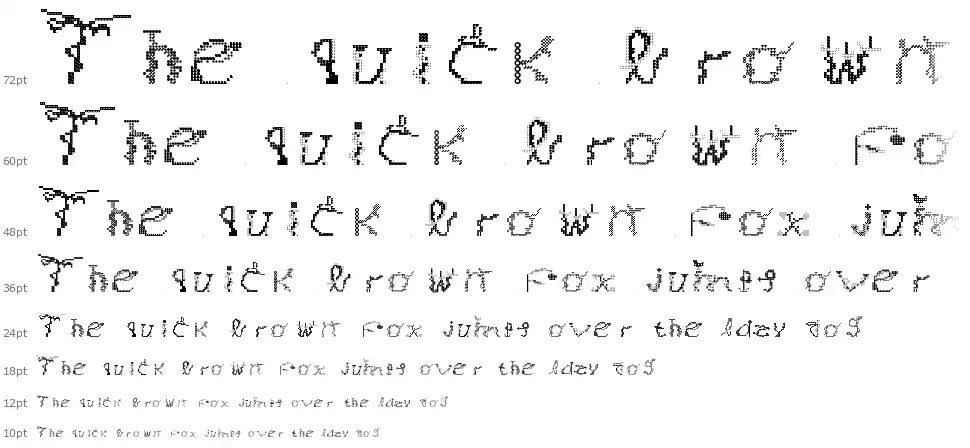 72pt The quick brown
60pt The quick brown Fo
48pt The quick brown Fox jum
36pt The quick brown Fox jumps over
24pt The quick brown Fox jumps over the lazy dog
18pt The quick brown Fox jumps over the lazy dog
12pt The quick brown Fox jumps over the lazy dog
10pt The quick brown Fox jumps over the lazy dog